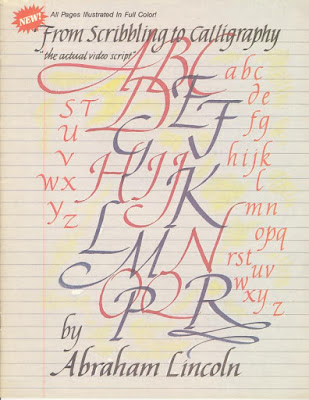 NEW!
All Pages Illustrated In Full Color!
From Scribbling to Calligraphy
"the actual video script"
ABC
DEF
G
HIJK
LMN
O
PQR
ST
U
V
WX
YZ
abc
de
fg
hijk
l
mn
opq
rst
uv
w
xy
z
by
Abraham Lincoln